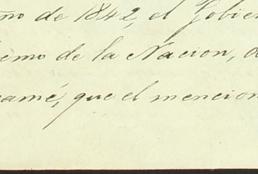 ño de 1842, el Gobier
emo de la Nacion, d
amé, que el mencion